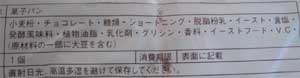 菓子パン
小麦粉・チョコレート・糖類・ショートニング・脱脂粉乳・イースト・食塩・
発酵風味料・植物油脂・乳化剤・グリシン・香料・イーストフード・V.C
(原材料の一部に大豆を含む)
1個 消費期限 表面に記載
直射日光、高温多湿を避けて保存してください。